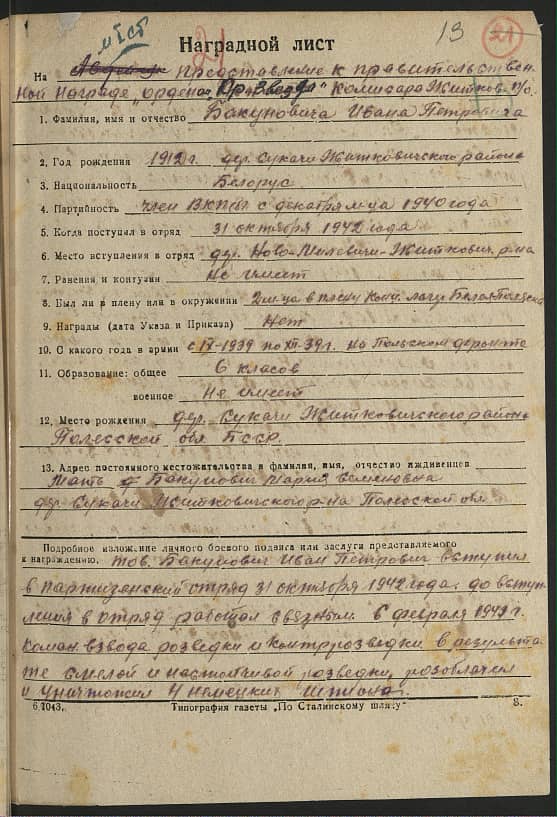 21
13
21
Наградной лист
На Представление к правительствен-
ной награде „орденом „Кр. Звезда" Комиссара Житков. п/о.
1. Фамилия, имя и отчество Бакуновича Ивана Петровича
2. Год рождения 1912 г. дер. Сукачи Житковичского района
3. Национальность Белорус
4. Партийность член ВКП(б) с декабря м-ца 1940 года
5. Когда поступил в отряд 31 октября 1942 года
6. Место вступления в отряд дер. Ново-Милевичи-Житкович. р-на
7. Ранения и контузии не имеет
8. Был ли в плену или в окружении 2 м-ца в плену Конц. лагер
9. Награды (дата Указа и Приказа) Нет
10. С какого года в армии с IX-1939 по XII-39 г. на Польском фронте
11. Образование: общее 6 класов
военное Не имеет
12. Место рождения дер. Сукачи Житковичского района
Полесской обл БССР.
13. Адрес постоянного местожательства и фамилия, имя, отчество иждивенцев
Мать Бакунович Мария Семеновна
дер Сукачи Житковичского р-на Полесской обл
Подробное изложение личного боевого подвига или заслуги представляемого
к награждению. тов. Бакунович Иван Петрович вступил
в партизенский отряд 31 октября 1942 года. до вступ-
ления в отряд работал связным. 6 февраля 1943 г.
коман. взвода розведки и контррозведки в результа-
те смелой и настойчивой розведки, розоблачил
и уничтожил 4 немецких шпиона.
6/1043.
Типография газеты „По Сталинскому шляху"
S.